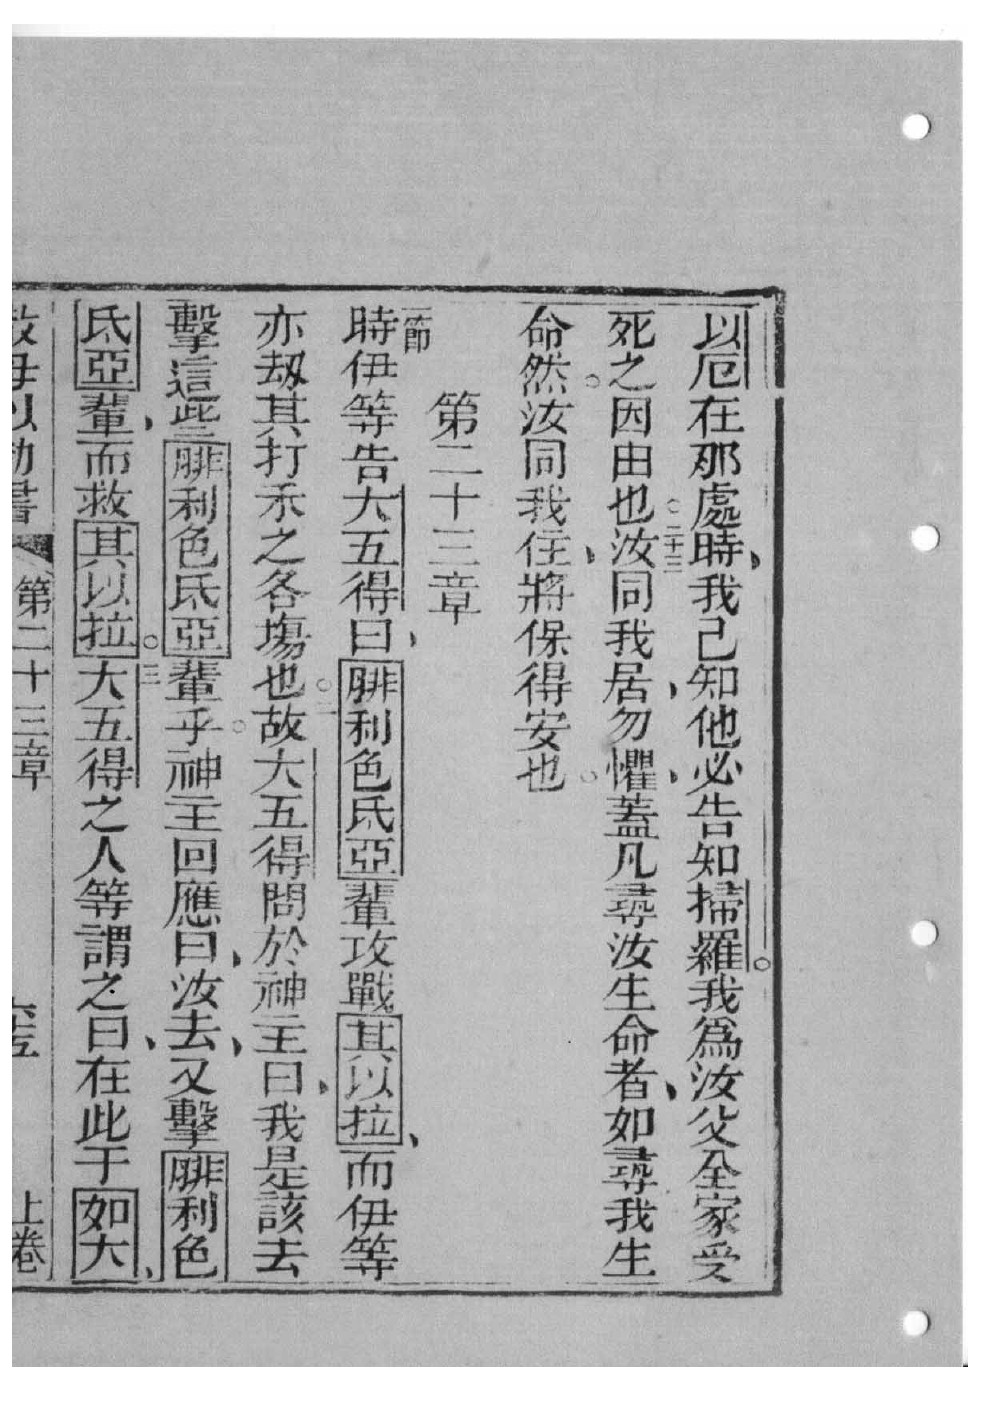 以厄在那處時、我己知他必告知掃羅。我爲汝父全家受
死之因由也。二十三汝同我居、勿懼、蓋凡尋汝生命者、如尋我生
命然。汝同我住、將保得安也。
第二十三章
一節時伊等告大五得曰、腓利色氐亞輩攻戰其以拉、而伊等
亦刼其打禾之各塲也。二故大五得問於神主曰、我是該去
擊這些腓利色氐亞輩乎。神主回應曰、汝去、又擊腓利色
氐亞輩、而救其以拉。三大五得之人等謂之曰、在此于如大、
第二十三章
上卷